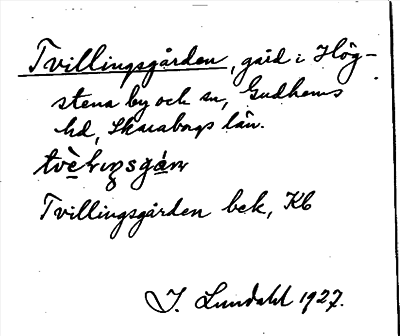 Tvillingsgården, gård i Hög-
stena by och sn, Gudhems
hd, Skaraborgs län.
Tvillingsgården bek, Kb
J. Lundahl 1927.